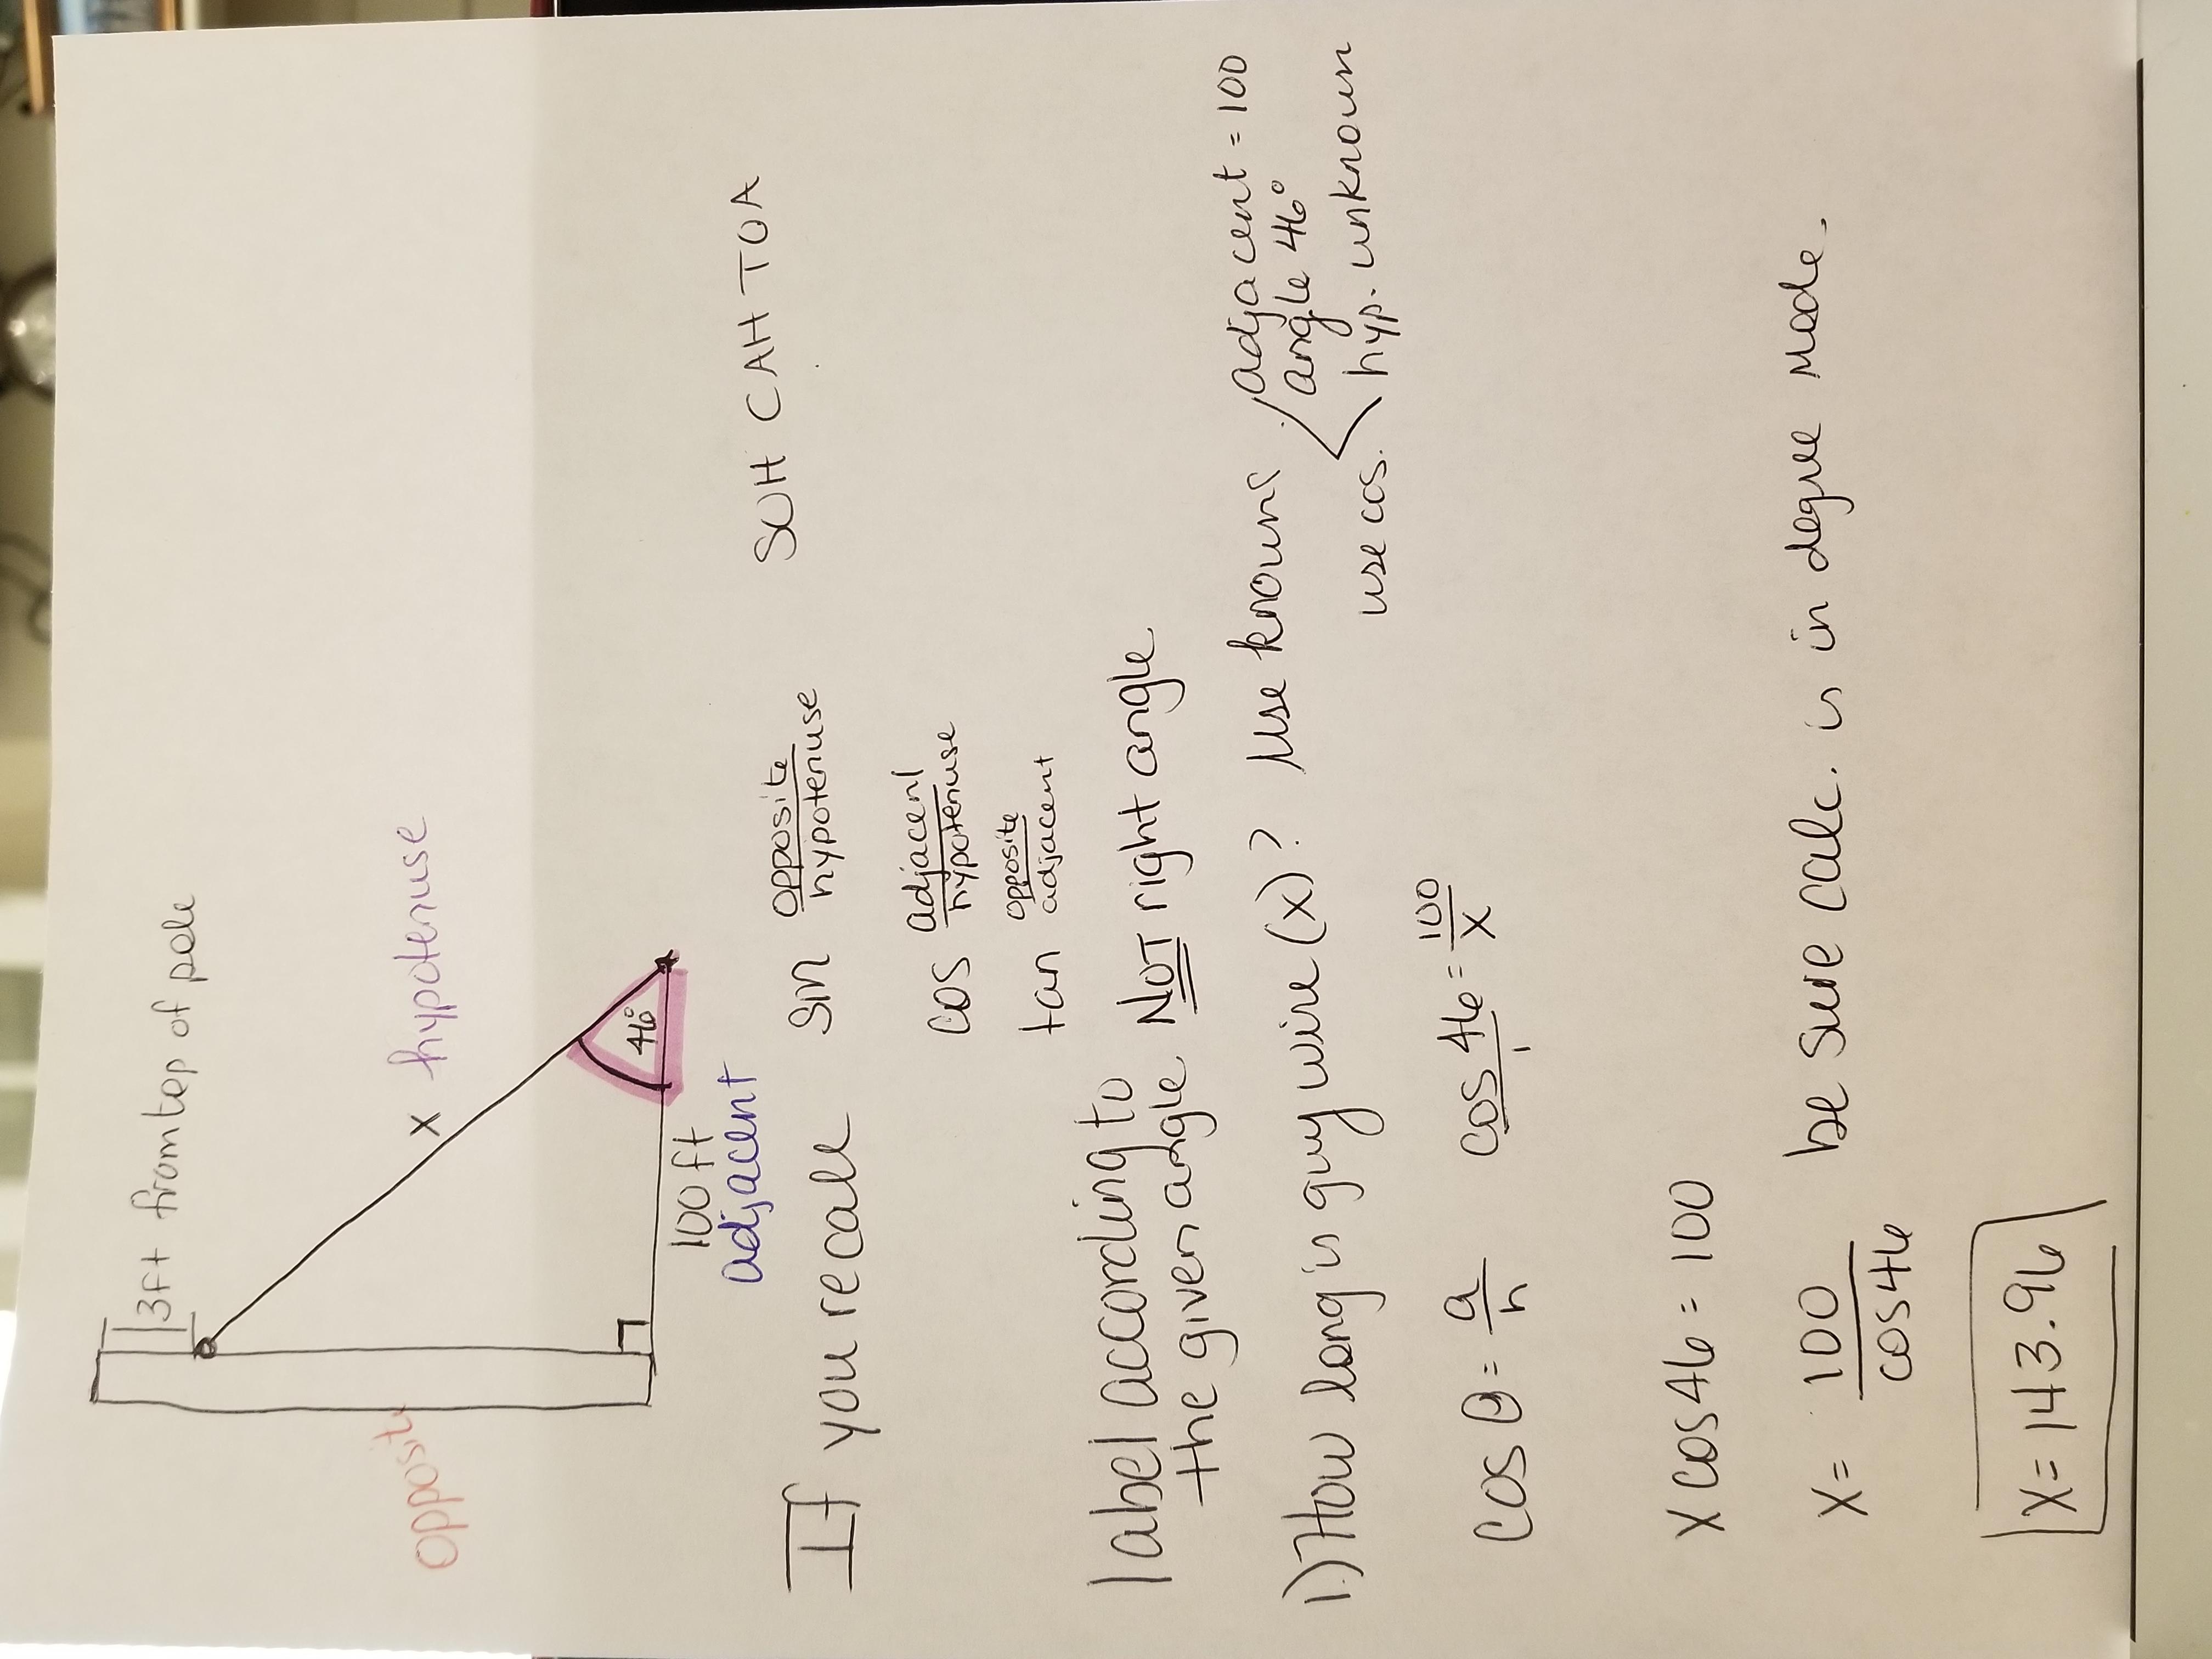 3ft from top of pole
opposite
x hypotenuse
46°
100ft
adjacent
If you recall sin opposite/hypotenuse SOH CAH TOA
cos adjacent/hypotenuse
tan opposite/adjacent
label according to
the given angle NOT right angle
1.) How long is guy wire (x)? Use knowns adjacent = 100
angle 46°
use cos. hyp. unknown
cos θ = a/h cos 46/1 = 100/x
x cos 46 = 100
x = 100/cos46 be sure calc. is in degree mode.
x = 143.96